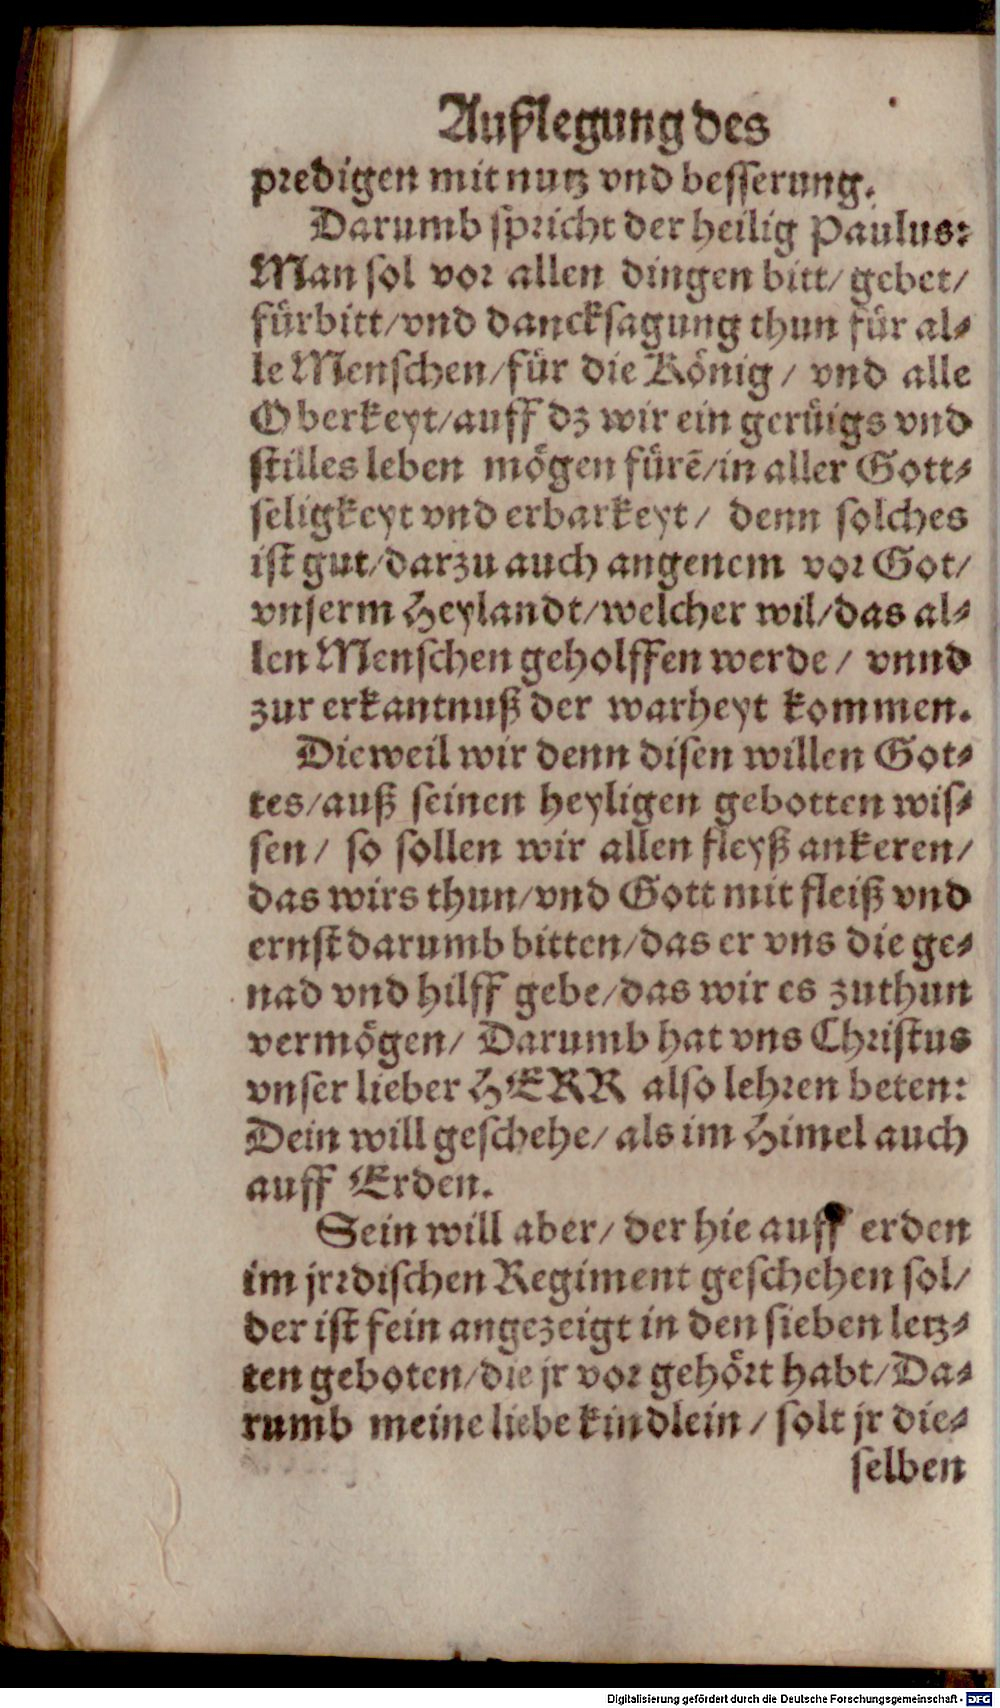 Außlegung des
predigen mit nutz vnd besserung.
Darumb spricht der heilig Paulus:
Man sol vor allen dingen bitt/ gebet/
fürbitt/vnd dancksagung thun für al⸗
le Menschen/für die König/ vnd alle
Oberkeyt/auff dz wir ein gerüigs vnd
stilles leben mögen fürē/in aller Gott⸗
seligkeyt vnd erbarkeyt/ denn solches
ist gut/darzu auch angenem vor Got/
vnserm Heylandt/welcher wil/das al⸗
len Menschen geholffen werde/ vnnd
zur erkantnuß der warheyt kommen.
Dieweil wir denn disen willen Got⸗
tes/auß seinen heyligen gebotten wis⸗
sen/ so sollen wir allen fleyß ankeren/
das wirs thun/vnd Gott mit fleiß vnd
ernst darumb bitten/das er vns die ge⸗
nad vnd hilff gebe/das wir es zuthun
vermögen/ Darumb hat vns Christus
vnser lieber HERR also lehren beten:
Dein will geschehe/ als im Himel auch
auff Erden.
Sein will aber/ der hie auff erden
im jrrdischen Regiment geschehen sol/
der ist fein angezeigt in den sieben letz⸗
ten geboten/die jr vor gehört habt/Da⸗
rumb meine liebe kindlein/ solt jr die⸗
selben
Digitalisierung gefördert durch die Deutsche Forschungsgemeinschaft - DFG